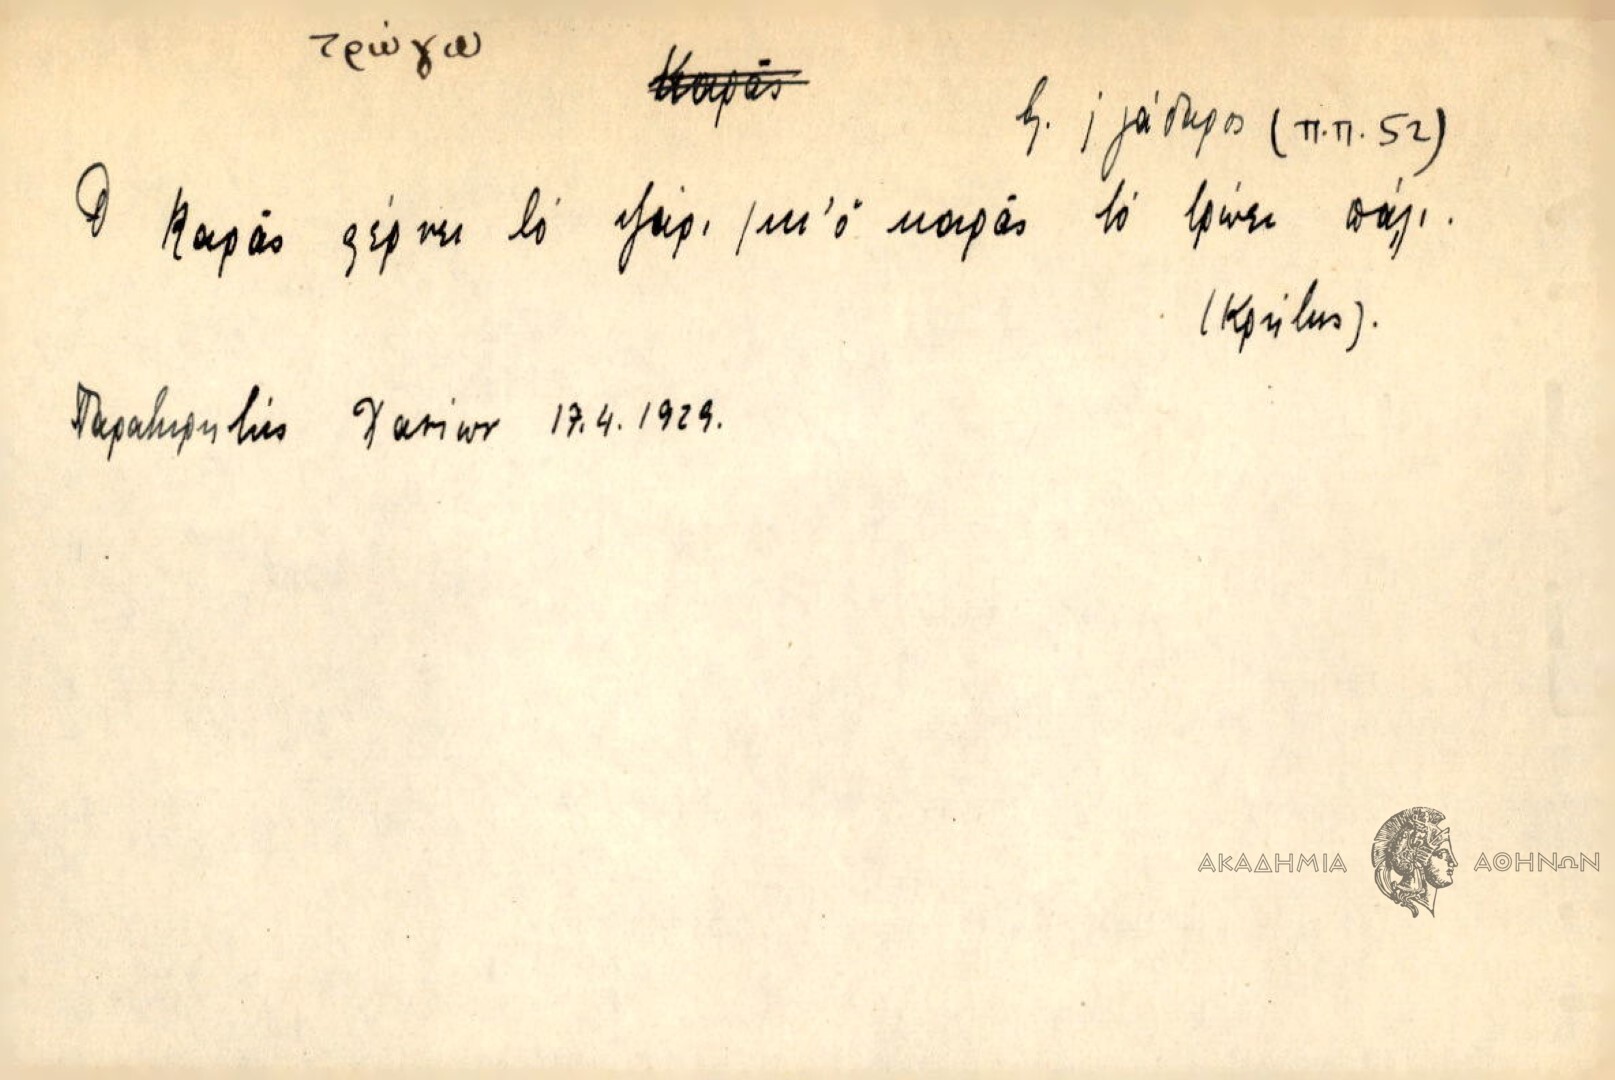 τρώγω
Καρᾶς
βλ. γάδαρος (Π.Π. 52)
Ὁ Καρᾶς φέρνει τό ψάρι / κι' ὁ καρᾶς τό τρώει πάλι.
(Κρήτης).
Παρατηρητής Χανίων 17.4.1929.
ΑΚΑΔΗΜΙΑ ΑΘΗΝΩΝ